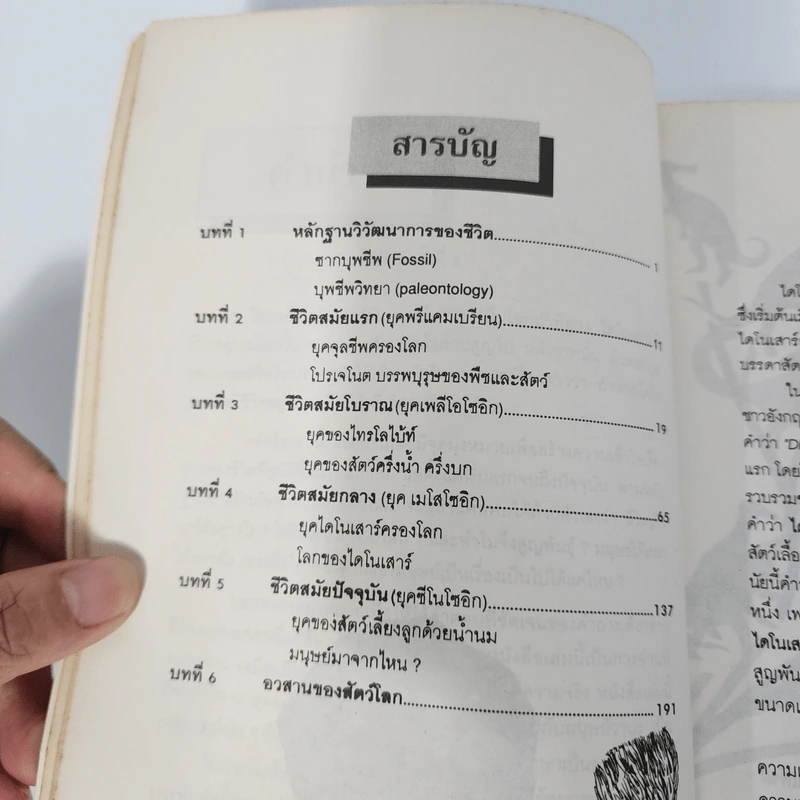 สารบัญ
บทที่ 1 หลักฐานวิวัฒนาการของชีวิต..........1
ซากบุพชีพ (Fossil)
บุพชีพวิทยา (paleontology)
บทที่ 2 ชีวิตสมัยแรก (ยุคพรีแคมเบรียน)..........11
ยุคจุลชีพครองโลก
โปรเจโนต บรรพบุรุษของพืชและสัตว์
บทที่ 3 ชีวิตสมัยโบราณ (ยุคเพลีโอโซอิก)..........19
ยุคของไทรโลไบ้ท์
ยุคของสัตว์ครึ่งน้ำ ครึ่งบก
บทที่ 4 ชีวิตสมัยกลาง (ยุค เมโสโซอิก)..........65
ยุคไดโนเสาร์ครองโลก
โลกของไดโนเสาร์
บทที่ 5 ชีวิตสมัยปัจจุบัน (ยุคซีโนโซอิก)..........137
ยุคของสัตว์เลี้ยงลูกด้วยน้ำนม
มนุษย์มาจากไหน ?
บทที่ 6 อวสานของสัตว์โลก..........191
ซึ่งเริ่มต้น
ไดโนเสาร์
บรรดาสัตว์
ใน
ชาวอังกฤษ
คำว่า
แรก โดย
รวบรวม
คำว่า
สัตว์เลื้อ
นัยนี้คำ
หนึ่ง
ไดโนเส
สูญพัน
ขนาด